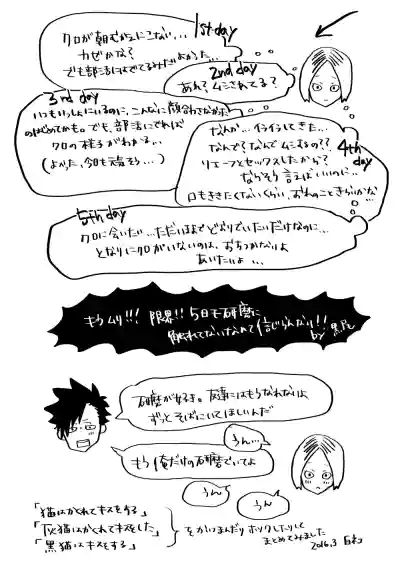 1st day
クロが朝むかえにこない...
カゼかな?
でも部活にはでてるみたいだよかった...
2nd day
あれ?ムシされてる?
3rd day
いつもいっしょにいるのに、こんなに顔合わさなかった
のはじめてかも。でも、部活にでれば
クロの様子がわかる...
(よかった、今日も元気そう...)
4th day
なんか...イライラしてきた...
なんで?なんでムシするの??
リエーフとセックスしたから?
ならそう言えばいいのに...
口もききたくないくらい、おれのこときらいかな...
5th day
クロに会いたい...ただいままでどおりでいたいだけなのに...
となりにクロがいないのは、おちつかないよ
あいたいよ...
もうムリ!!!限界!!5日も研磨に
触れてないなんて信じらんない!!
by 黒尾
研磨が好き。友達にはもうなれないよ
ずっとそばにいてほしいんだ
うん...
もう俺だけの研磨でいてよ
うん
うん
「猫はかくれてキスをする」
「灰猫はかくれてキスをした」
「黒猫はキスをする」
をかいつまんだりボツクしたりして
まとめてみました
2016.3